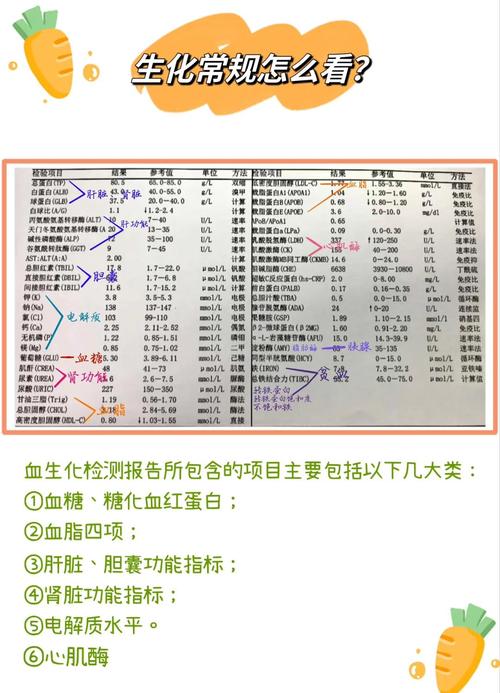 生化常规怎么看？
检验项目 结果 参考值 单位 方法 检验项目 结果 参考值 单位 方法
总蛋白(TP) 80.5 65.0-85.0 g/L 双缩
白蛋白(ALB) 43.0 40.0-55.0 g/L 溴甲
球蛋白(GLB) 37.5 20.0-40.0 g/L 计算
白球比(A/G) 1.1 ↓1.2-2.4 计算
丙氨酸氨基转移酶(ALT) 7-40 U/L 速率
天门冬氨酸氨基转移酶(A 20 13-35 U/L 速率
碱性磷酸酶(ALP) 35-100 U/L 速率
谷氨酸转肽酶(GGT) 9 U/L 速率
AST:ALT(A:A) 2.00 计算
总胆红素(TBIL) 17.8 1.7-22.0 μmol/L 钒酸
直接胆红素(DBIL) μmol/L 钒酸
间接胆红素(IBIL) 11.6 1.7-15.2 μmol/L 计算
钾(K) 3.8 3.5-5.3 mmol/L 电极
钠(Na) 138 137-147 mmol/L 电极
氯(Cl) 103 99-110 mmol/L 电极
钙(Ca) 2.25 2.11-2.52 mmol/L 偶氮
无机磷(P) 1.22 0.85-1.51 mmol/L 磷钼
镁(Mg) 0.75-1.02 mmol/L 二甲
葡萄糖(GLU) 5.30 3.89-6.11 mmol/L 己糖
肌酐(CREA) 48 41-73 μmol/L 肌氨
尿素(UREA) 2.6-7.5 mmol/L 脲酶
尿酸(URIC) 227 150-350 μmol/L 尿酸
甘油三酯(Trig) 1.19 0.56-1.70 mmol/L 酶法
总胆固醇(CHOL) 2.84-5.69 mmol/L 酶法
高密度胆固醇(HDL-C) 0.80 ↓1.03-1.55 mmol/L 直接
低密度胆固醇(LDL-C) 1.77 1.55-3.36 mmol/L 直接法
载脂蛋白A1(APOA1) 1.04 ↓1.20-1.60 g/L 免疫比
载脂蛋白B(APOB) 0.68 ↓0.80-1.20 g/L 免疫比
载脂蛋白E(APOE) 3.6 2.0-10.0 mg/dl 免疫比
APoB/APoA1 0.65 计算值
乳酸脱氢酶(LDH) 337 ↑120-250 U/L 速率法
肌酸激酶(CK) 155 40-200 U/L 速率法
肌酸激酶MB同工酶(CKMB) 14.6 0-24.0 U/L 免疫
胆碱酯酶(CHE) 6638 3930-10800 U/L 丁酰硫
超敏C反应蛋白(hs-CRP) 2.0 0-10.0 mg/L 免疫比
前白蛋白(PALB) 0.17 0.17-0.42 g/L 免疫比
总胆汁酸(TBA) 0.5 0.0-15.0 μmol/L 循环酶
腺苷脱氨酶(ADA) 24 ↑0-20 U/L 连续监
脂蛋白a(LPa) 0.09 0-0.30 g/L 免疫比
β2-微球蛋白(β2MG) 1.60 0.91-2.20 mg/L 免疫比
α-L-岩藻糖苷酶(AFU) 15.0 14.3-39.9 U/L 速率法
淀粉酶(AMY) 35-135 U/L 速率法
同型半胱氨酸(HCY) 8.7 0-15.0 μmol/L 循环酶
铁(IRON) 7.8-32.2 μmol/L 亚铁嗪
总铁结合力(TIBC) 58.2 45.0-75.0 μmol/L 计算值
果糖胺(GSP) 1.89 1.10-2.15 mmol/L 硝基四
肝脏 肾脏
肝功能
胆囊
电解质
血糖
肾功能
血脂
血脂
心肌酶
脂肪酶 胰腺
贫血
转铁蛋白
转铁蛋白饱和度
不饱和铁
血生化检测报告所包含的项目主要包括以下几大类：
①血糖、糖化血红蛋白；
②血脂四项；
③肝脏、胆囊功能指标；
④肾脏功能指标；
⑤电解质水平。
⑥心肌酶